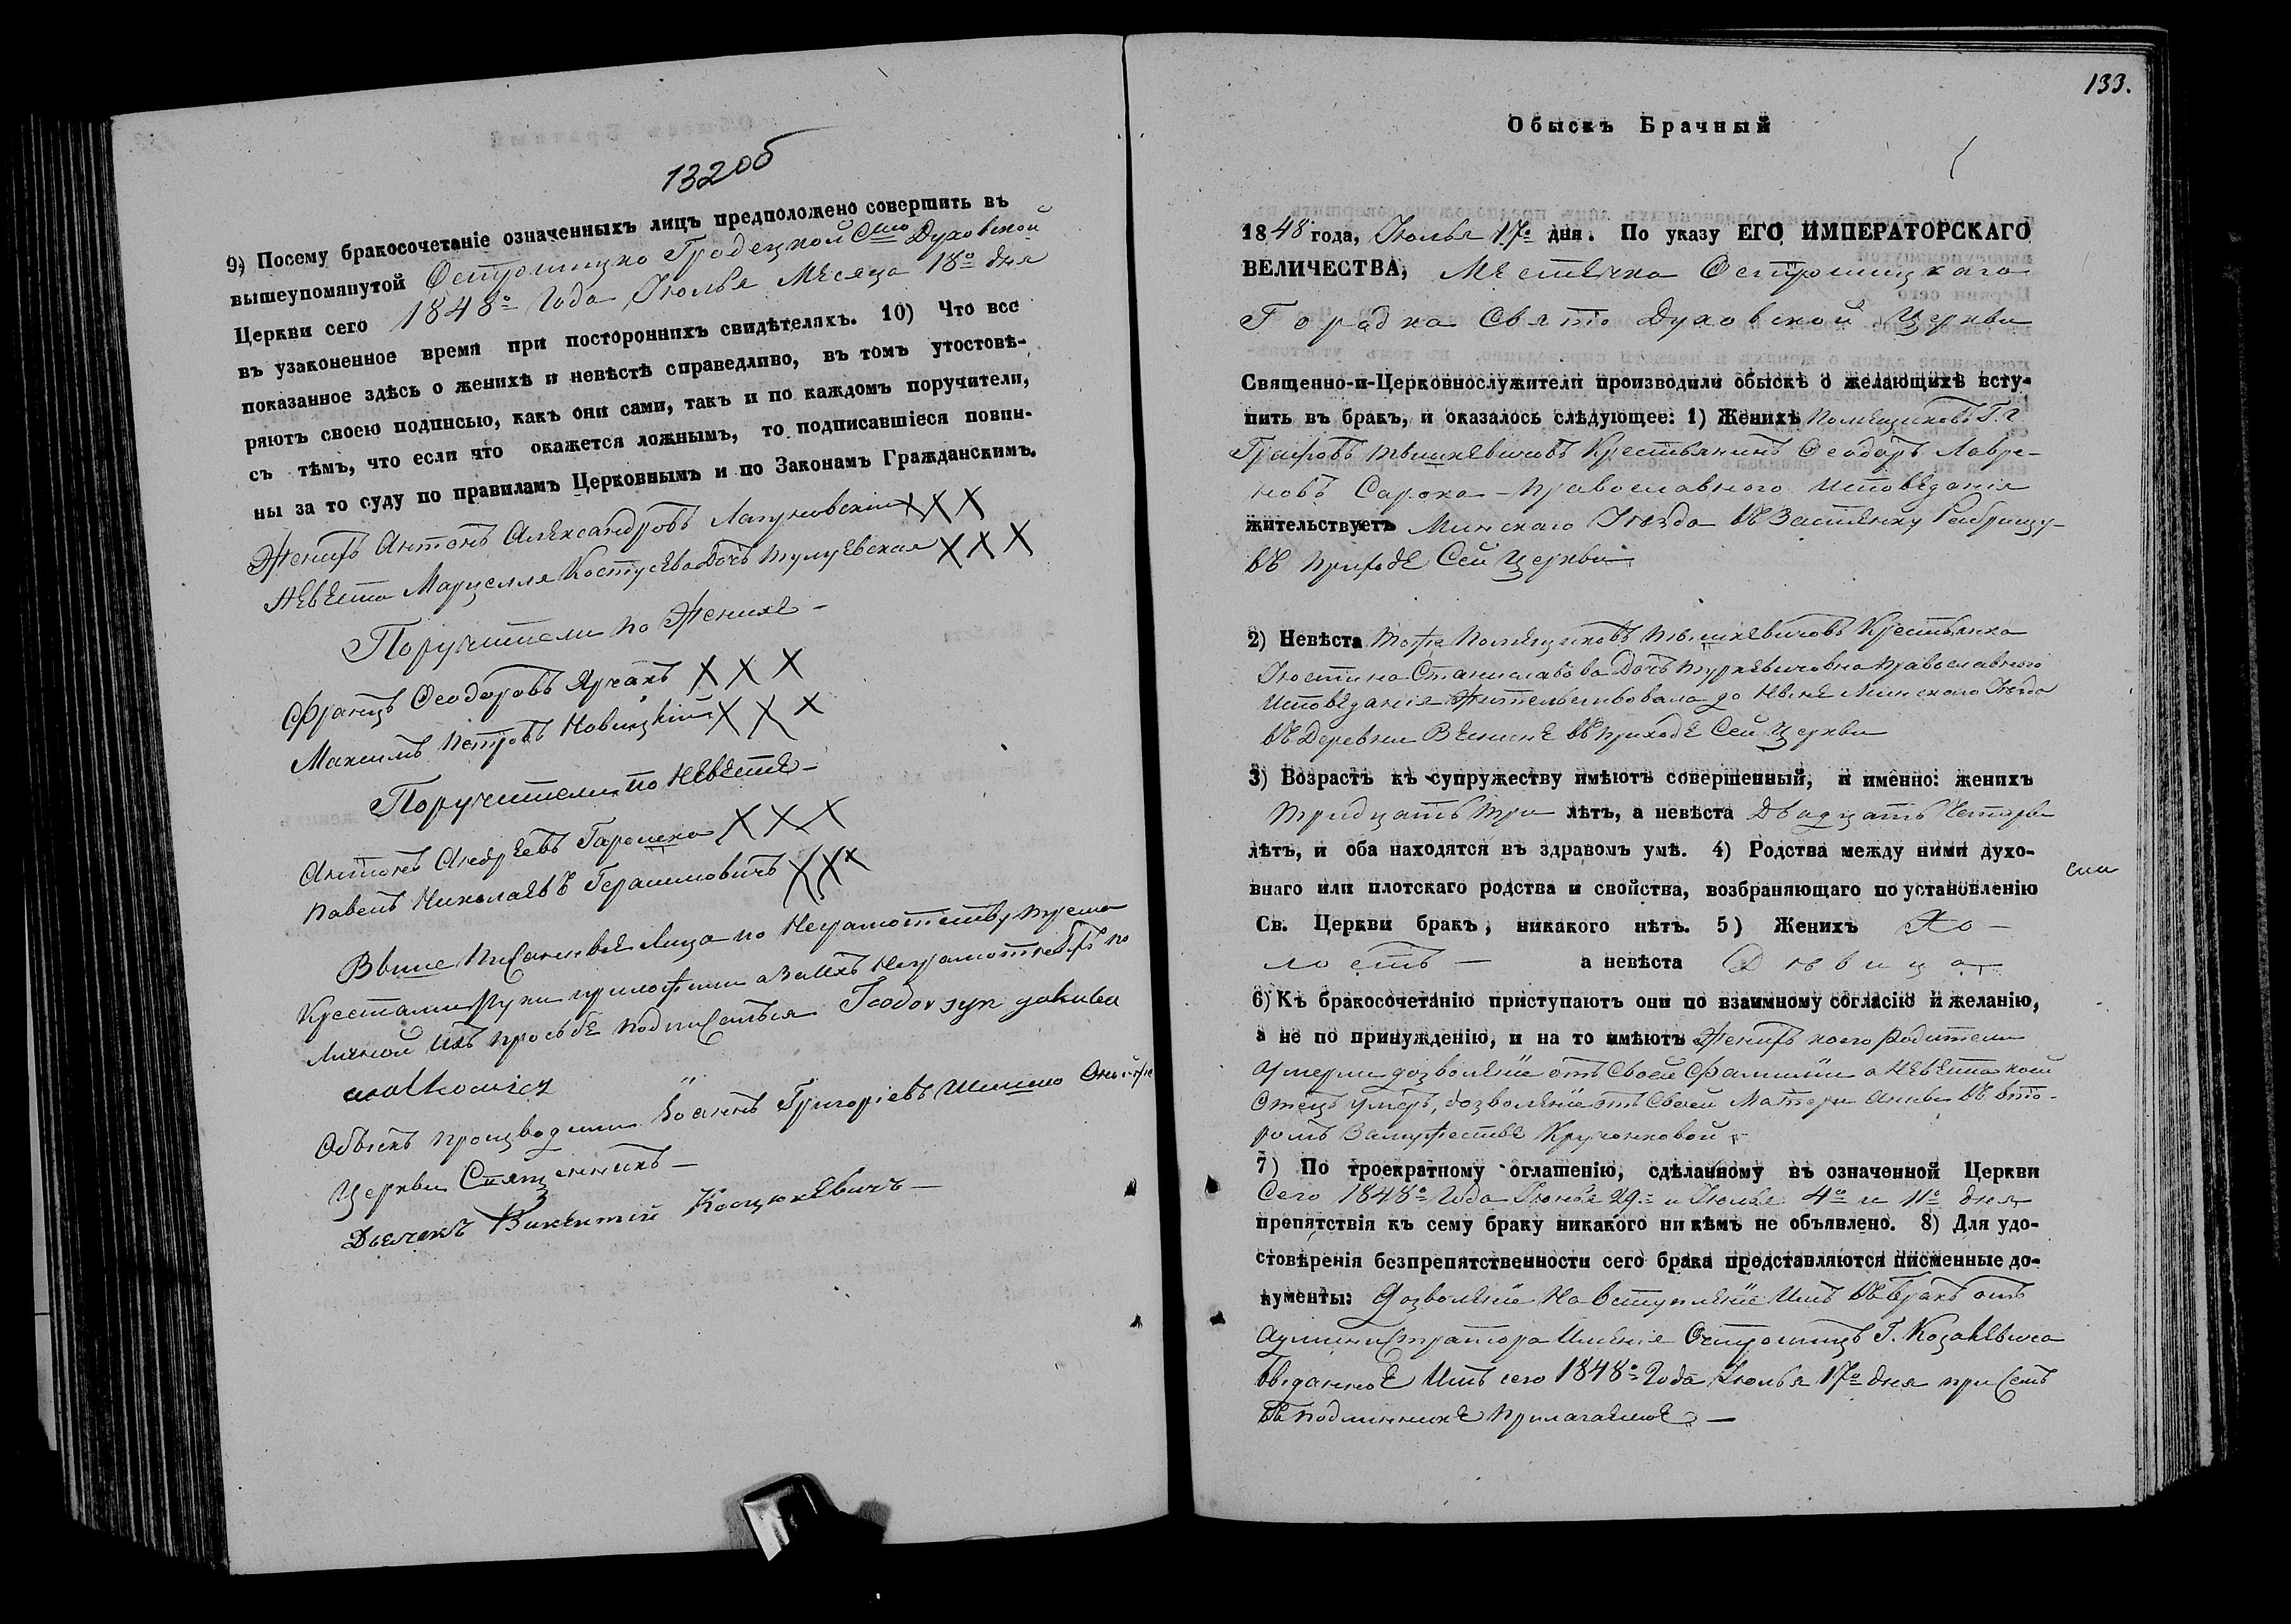 132об
9) Посему бракосочетаніе означенныхъ лицъ предположено совершить въ
вышеупомянутой Острошицко Градецкой Сто Духовской
Церкви сего 1848о Года Іюлья Месяца 18о дня
въ узаконенное время при постороннихъ свидѣтеляхъ. 10) Что все
показанное здѣсь о женихѣ и невѣстѣ справедливо, въ томъ утостовѣ-
ряютъ своею подписью, какъ они сами, такъ и по каждомъ поручители,
съ тѣмъ, что если что окажется ложнымъ, то подписавшіеся повин-
ны за то суду по правиламъ Церковнымъ и по Законамъ Гражданскимъ.
Женихъ Антонъ Александровъ ХХХ
Невеста Марцелля Костусева Дочъ ХХХ
Поручители по Женихе
Францъ Феодоровъ ХХХ
Максимъ Петровъ Новицкій ХХХ
Поручители по Невесте
Антонъ Андреевъ Гарошка ХХХ
Павелъ Николаевъ Герасимовичъ ХХХ
Выше Писанные Лица по Неграмотству тремя
Крестами Руки приложили а За ихъ Неграмотныхъ по
Личной ихъ просьбе подписалъся Teodor syn
walkowicz
Обыскъ производили Іоаннъ Григоріевъ
Церкви Священникъ
Дьячекъ Викентій Коцюкевичъ
133.
Обыскъ Брачный
1848 года, Іюлья 17о дня. По указу ЕГО ИМПЕРАТОРСКАГО
ВЕЛИЧЕСТВА, Местечка Острошицкаго
Городка Свято Духовской Церкви
Священно-и-Церковнослужители производили обыскъ о желающихъ всту-
пить въ бракъ, и оказалось слѣдующее: 1) Женихъ Помещиковъ Г. Г
Графовъ Тышкевичовъ Крестьянинъ Феодоръ Лавре-
новъ Сарока Православного Исповеданія
жительствуетъ Минскаго Уезда въ Застенку
въ приходе Сей Церкви
2) Невѣста тоже Помещиковъ Тышкевичовъ Крестьянка
Юстина Станиславова Дочъ Туркевичовна Православного
Исповеданія Жительствовала до Ныне Минскаго Уезда
въ Деревни въ приходе Сей Церкви
3) Возрастъ къ супружеству имѣютъ совершенный, и именно: женихъ
Тридцать три лѣтъ, а невѣста Двадцать Четыри
лѣтъ, и оба находятся въ здравомъ умѣ. 4) Родства между ними духо-
внаго или плотскаго родства и свойства, возбраняющаго по установленію
Св. Церкви бракъ, никакого нѣтъ. 5) Женихъ Хо-
лостъ а невѣста Девица
6) Къ бракосочетанію приступаютъ они по взаимному согласію и желанію,
а не по принужденію, и на то имѣютъ Женихъ коего Родители
Умерли дозволеніе отъ Своей Фамиліи а Невеста коей
Отецъ умеръ, дозволеніе отъ Своей Матери Анны въ вто-
ромъ Замужестве
7) По троекратному оглашенію, сдѣланному въ означенной Церкви
Сего 1848о Года Іюнья 29о и Іюлья 4о и 11о дня
препятствія къ сему браку никакого ни кѣмъ не объявлено. 8) Для удо-
стовѣренія безпрепятственности сего брака представляются писменные до-
кументы: Дозволеніе На вступленіе Имъ въ Бракъ отъ
Администратора Именія Острошицъ Г. Козакевича
Выданное Имъ сего 1848о Года Іюлья 17о дня при Семъ
въ подлиннике Прилагаемое